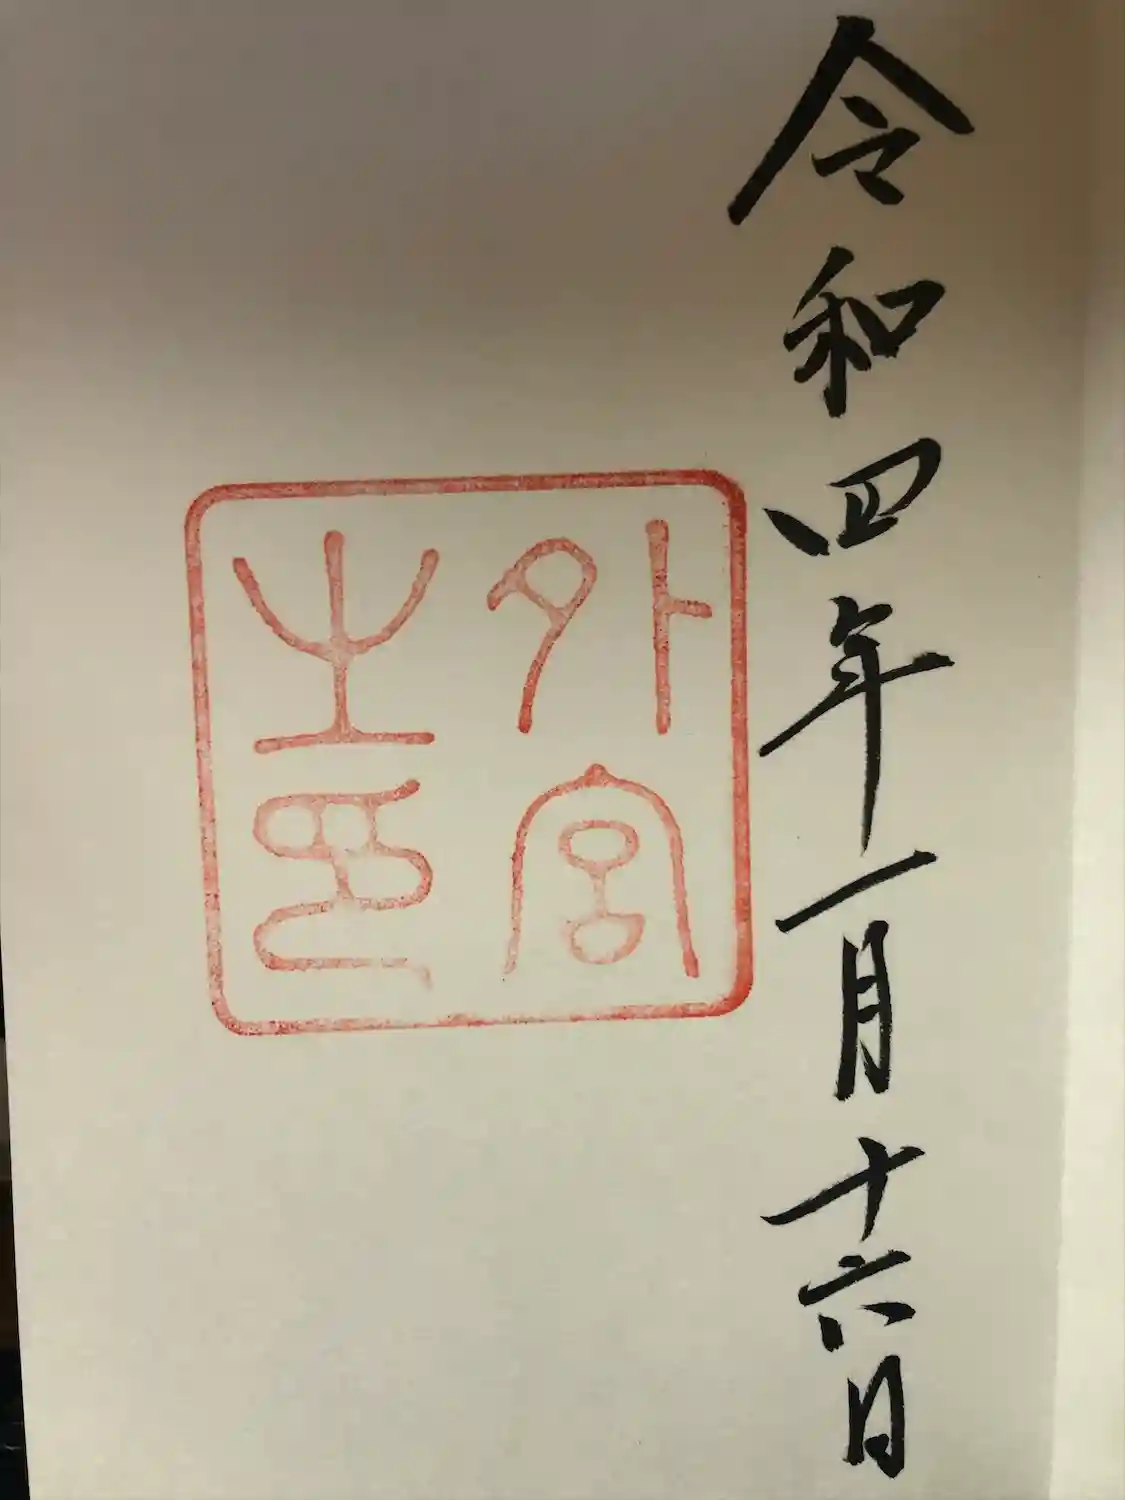 令和四年一月十六日
外宮
之印